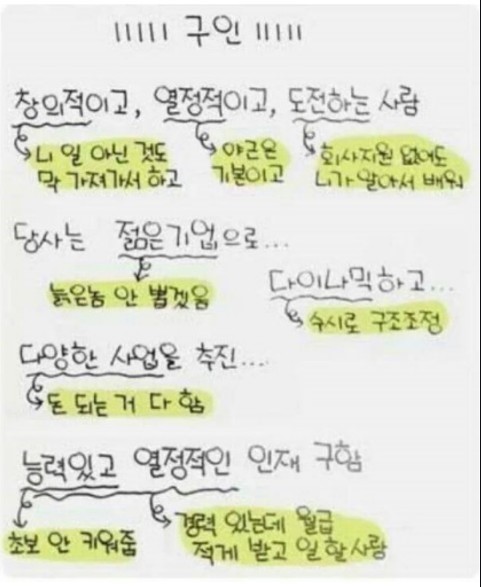 구인
창의적이고, 열정적이고, 도전하는 사람
니 일 아닌 것도
막 가져가서 하고
야근은
기본이고
회사지원 없어도
니가 알아서 배워
당사는 젊은기업으로...
늙은놈 안 뽑겠음
다이나믹하고...
수시로 구조조정
다양한 사업을 추진...
돈 되는 거 다 함
능력있고 열정적인 인재 구함
초보 안 키워줌
경력 있는데 월급
적게 받고 일 할 사람